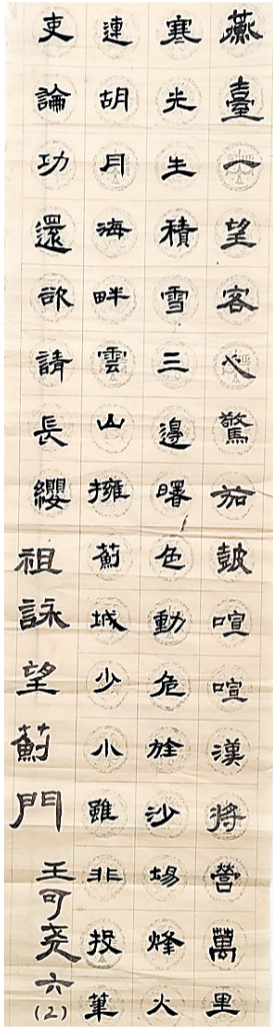 燕臺一望客心驚笳鼓喧喧漢將營萬里
寒光生積雪三邊曙色動危旌沙場烽火
連胡月海畔雲山擁薊城少小雖非投筆
吏論功還欲請長纓祖詠望薊門
王可尧六(2)